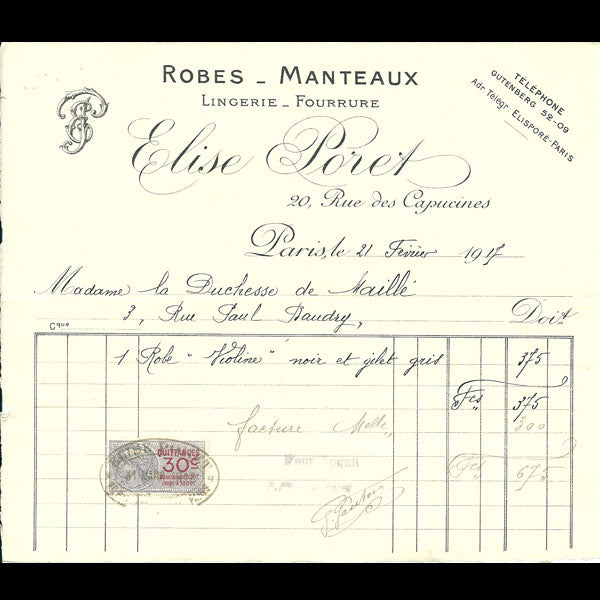 ROBES - MANTEAUX
LINGERIE - FOURRURE
Elise Poret
20, Rue des Capucines
TÉLÉPHONE
GUTENBERG 52-09
Adr. Télégr. ELISPORÉ-PARIS
Paris, le 21 Février 1917
Madame la Duchesse de Maillé
3, Rue Paul Baudry, Doit
1 Robe "Violine" noir et gilet gris 375
Fcs 375
facture Melle 300
Fcs 675
QUITTANCES
30c